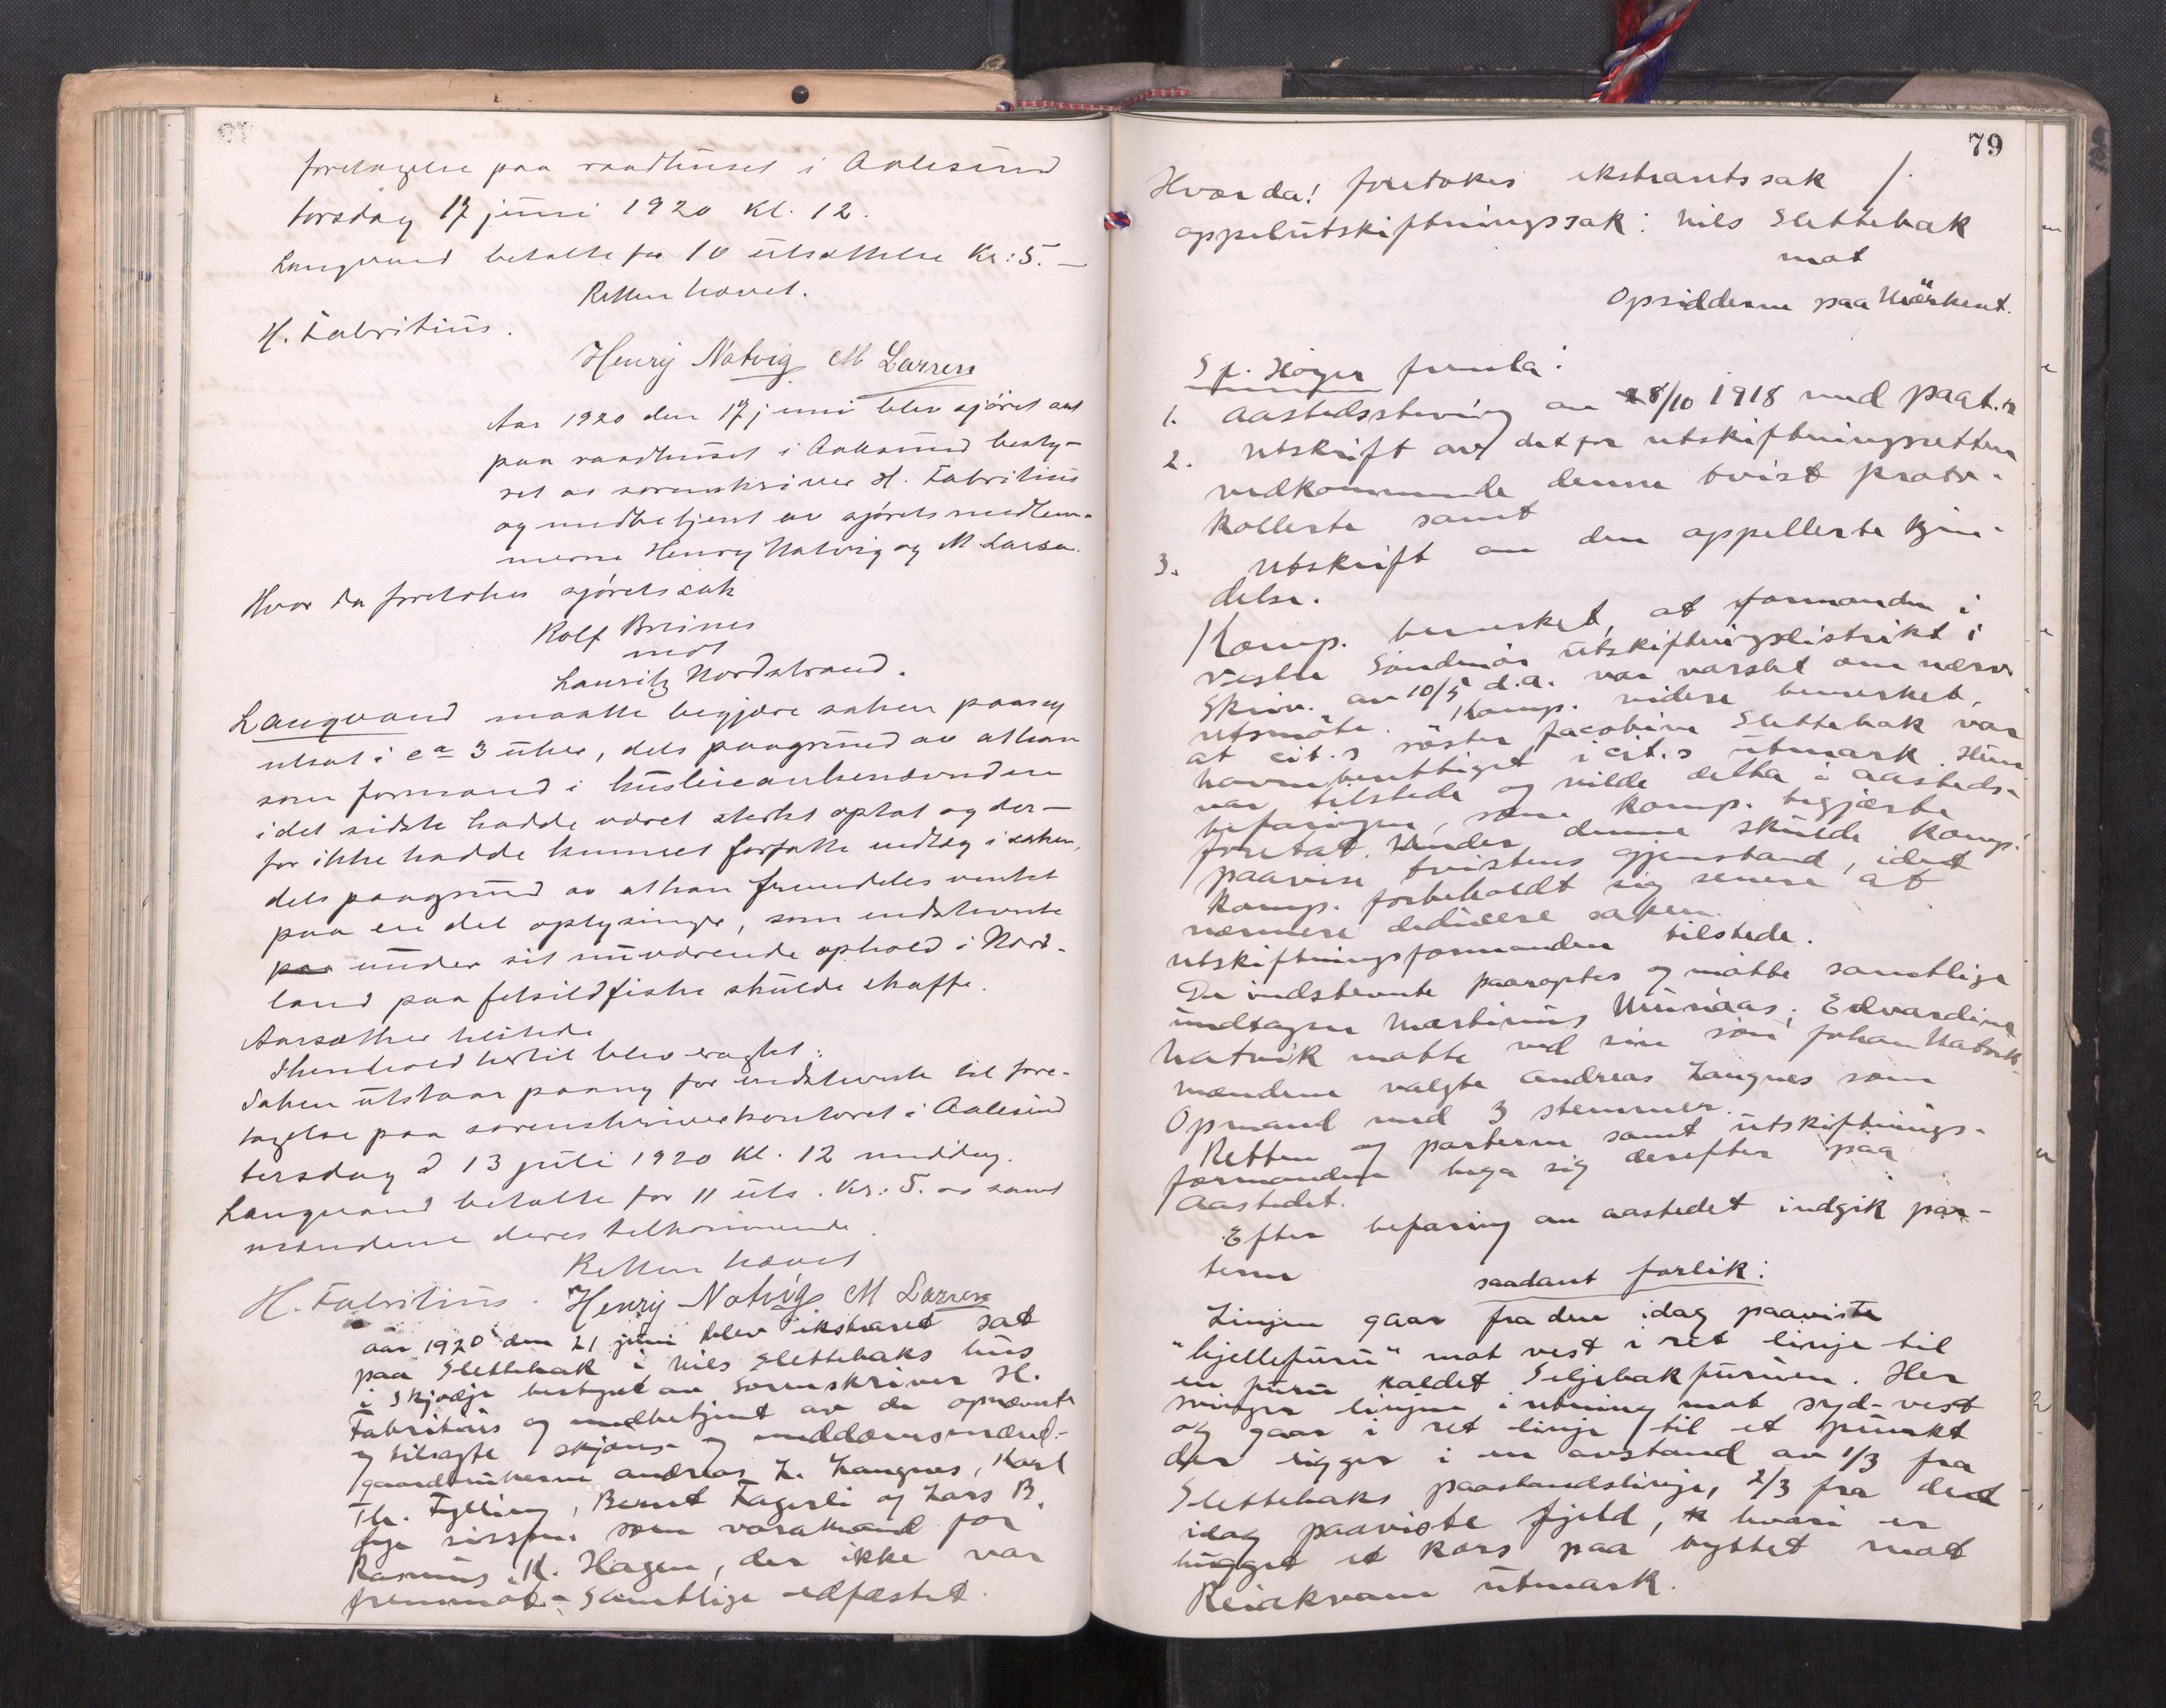 foretagelse paa raadhuset i Aalesund
torsdag 17 juni 1920 kl. 12.
Langvand betalte for 10 utsættelse kr: 5.—
Retten hævet.
H. Fabritius.
Henry Natvig M Larsen
Aar 1920 den 17 juni blev sjöret sat
paa raadhuset i Aalesund besty-
ret av sorenskriver H. Fabritius
og medbetjent av sjöretsmedlem-
merne Henry Natvig og M Larsen.
Hvor da foretokes sjöretssak
Rolf Breines
mot
Lauritz Nordstrand.
Langvand maatte begjære saken paany
utsat i ca 3 uker, dels paagrund av at han
som formand i husleienævnden
i det sidste hadde været sterkt optat og der-
for ikke hadde kunnet forfatte indlæg i saken,
dels paagrund av at han fremdeles ventet
paa en del oplysninger, som indstevnte
paa under sit nuværende ophold i Nord-
land paa fetsildfiske skulde skaffe.
Aarsæther tilstede
I henhold hertil blev eragtet:
Saken utstaar paany for indstevnte til fore-
tagelse paa sorenskriverkontoret i Aalesund
tirsdag d 13 juli 1920 kl. 12 middag.
Langvand betalte for 11 uts. kr: 5. os samt
mændene deres tilkommende.
Retten hævet
H. Fabritius. Henry Natvig M Larsen
Aar 1920 den 21 juni blev ekstraret sat
paa Slettebak i Nils Slettebaks hus
i Skjodje bestyret av Sorenskriver H.
Fabritius og medbetjent av de opnævnte
og tilsagte skjöns- og meddomsmænd-
gaardbrukerne Andreas L. Langnes, Karl
Th. Fylling, Bernt Fagerli og Lars B.
som varamand for
Rasmus K. Hagen, der ikke var
fremmöt. - Samtlige edfæstet.
79
Hvor da! foretokes ekstraretssak /.
appelutskiftningssak: Nils Slettebak
mot
Opsidderne paa Uksnöt.
O.r. Höyer fremla:
1. Aastedsstevning av 28/10 1918 med paat.n
2. Utskrift av det for utskiftningsretten
vedkommende denne tvist proto-
kollerte samt
3. Utskrift av den appellerte kjen-
delse.
Komp. bemerket, at formanden i
Vestre Söndmör utskiftningsdistrikt i
Skriv. av 10/5 d.a. var varslet om nærv.
retsmöte. Komp. videre bemerket,
at cit.s söster Jacobine Slettebak var
havneberettiget i cit.s utmark. Hun
var tilstede og vilde delta i aasteds-
befaringen, som komp. begjærte
foretat. Under denne skulde komp.
paavise tvistens gjenstand, idet
komp. forbeholdt sig senere at
nærmere deducere saken.
Utskiftningsformanden tilstede.
De indstevnte paaroptes og mötte samtlige
undtagen Martinus Muriaas; Edvardine
Natvik mötte ved sin sön Johan Natvik
Mændene valgte Andreas Langnes som
Opmand med 3 stemmer.
Retten og parterne samt utskiftnings-
formanden begav sig derefter paa
Aastedet.
Efter befaring av aastedet indgik par-
terne
saadant forlik:
Linjen gaar fra den idag paaviste
"bjellefuru" mot vest i ret linje til
en furu kaldet Seljebakfuruen. Her
svinger linjen i retning mot syd-vest
og gaar i ret linje til et punkt
der ligger i en avstand av 1/3 fra
Slettebaks paastandslinje, 2/3 fra det
idag paaviste fjeld, hvori er
hugget et kors paa byttet mot
Reiakvam utmark.